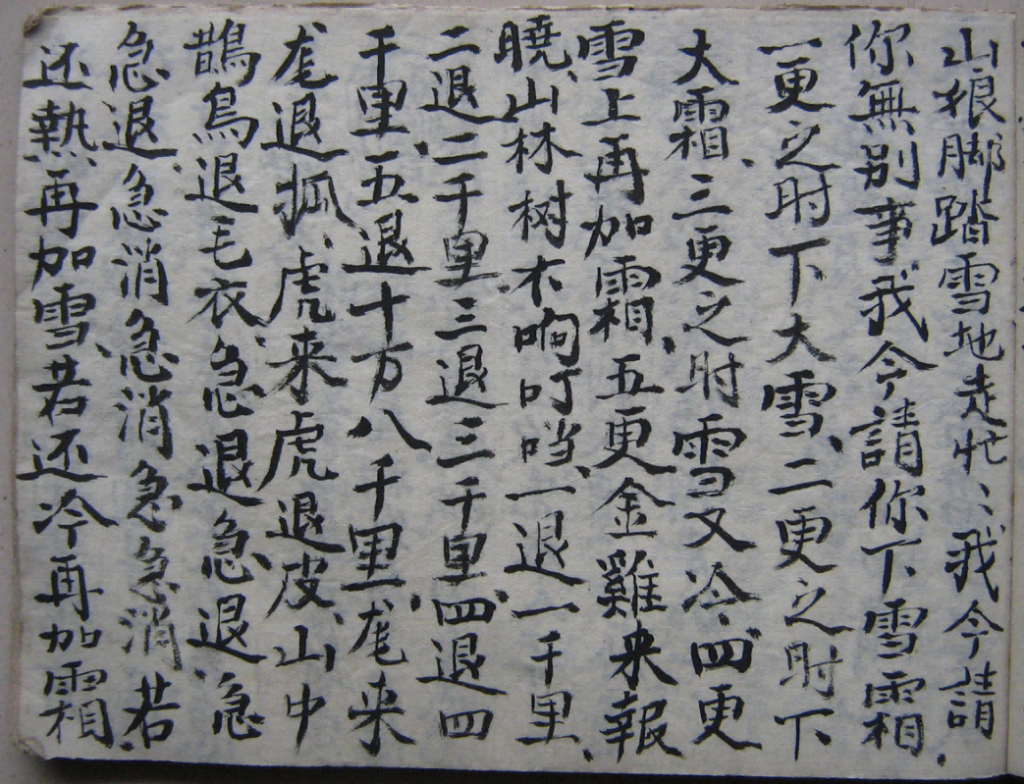 山狼脚踏雪地走忙〻我今請
你無别事我今請你下雪霜
一更之时下大雪、二更之时下
大霜、三更之时雪又冷、四更
雪上再加霜、五更金雞来報
曉、山林树木响叮噹、一退一千里、
二退、二千里、三退三千里、四退四
千里、五退十万八千里、尨来
尨退狐、虎来虎退皮、山中
鵲鳥退毛衣、急退急退、急
急退、急消急消急急消若
还熱再加雪、若还冷再加霜、